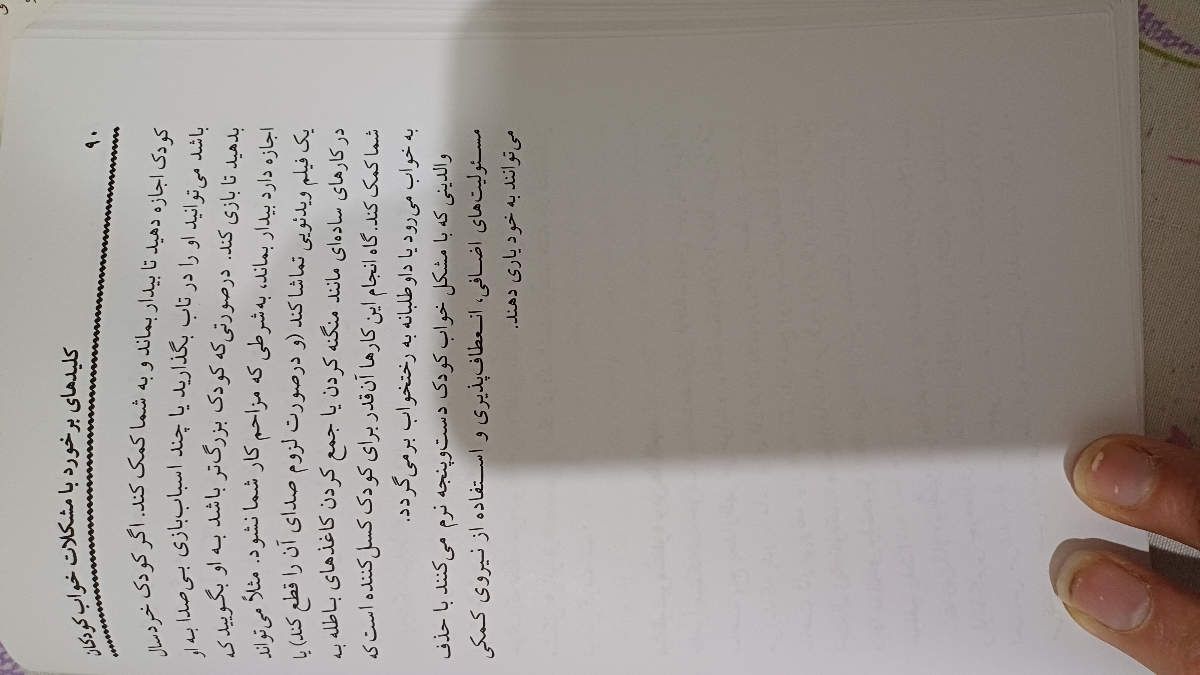 ۹۰
کلیدهای برخورد با مشکلات خواب کودکان
کودک اجازه دهید تا بیدار بماند و به شما کمک کند. اگر کودک خردسال
باشد می‌توانید او را در تاب بگذارید یا چند اسباب‌بازی بی‌صدا به او
بدهید تا بازی کند. درصورتی‌که کودک بزرگ‌تر باشد به او بگویید که
اجازه دارد بیدار بماند، به‌شرطی که مزاحم کار شما نشود. مثلاً می‌تواند
یک فیلم ویدئویی تماشا کند (و درصورت لزوم صدای آن را قطع کند) یا
در کارهای ساده‌ای مانند منگنه کردن یا جمع کردن کاغذهای باطله به
شما کمک کند. گاه انجام این کارها آن‌قدر برای کودک کسل‌کننده است که
به خواب می‌رود یا داوطلبانه به رختخواب برمی‌گردد.
والدینی که با مشکل خواب کودک دست‌وپنجه نرم می‌کنند با حذف
مسئولیت‌های اضافی، انعطاف‌پذیری و استفاده از نیروی کمکی
می‌توانند به خود یاری دهند.